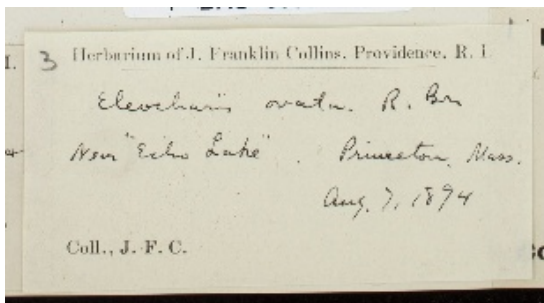 3
Herbarium of J. Franklin Collins, Providence, R. I.
Eleocharis ovata. R. Br
Near "Echo Lake". Princeton, Mass.
Aug. 7, 1894
Coll., J. F. C.